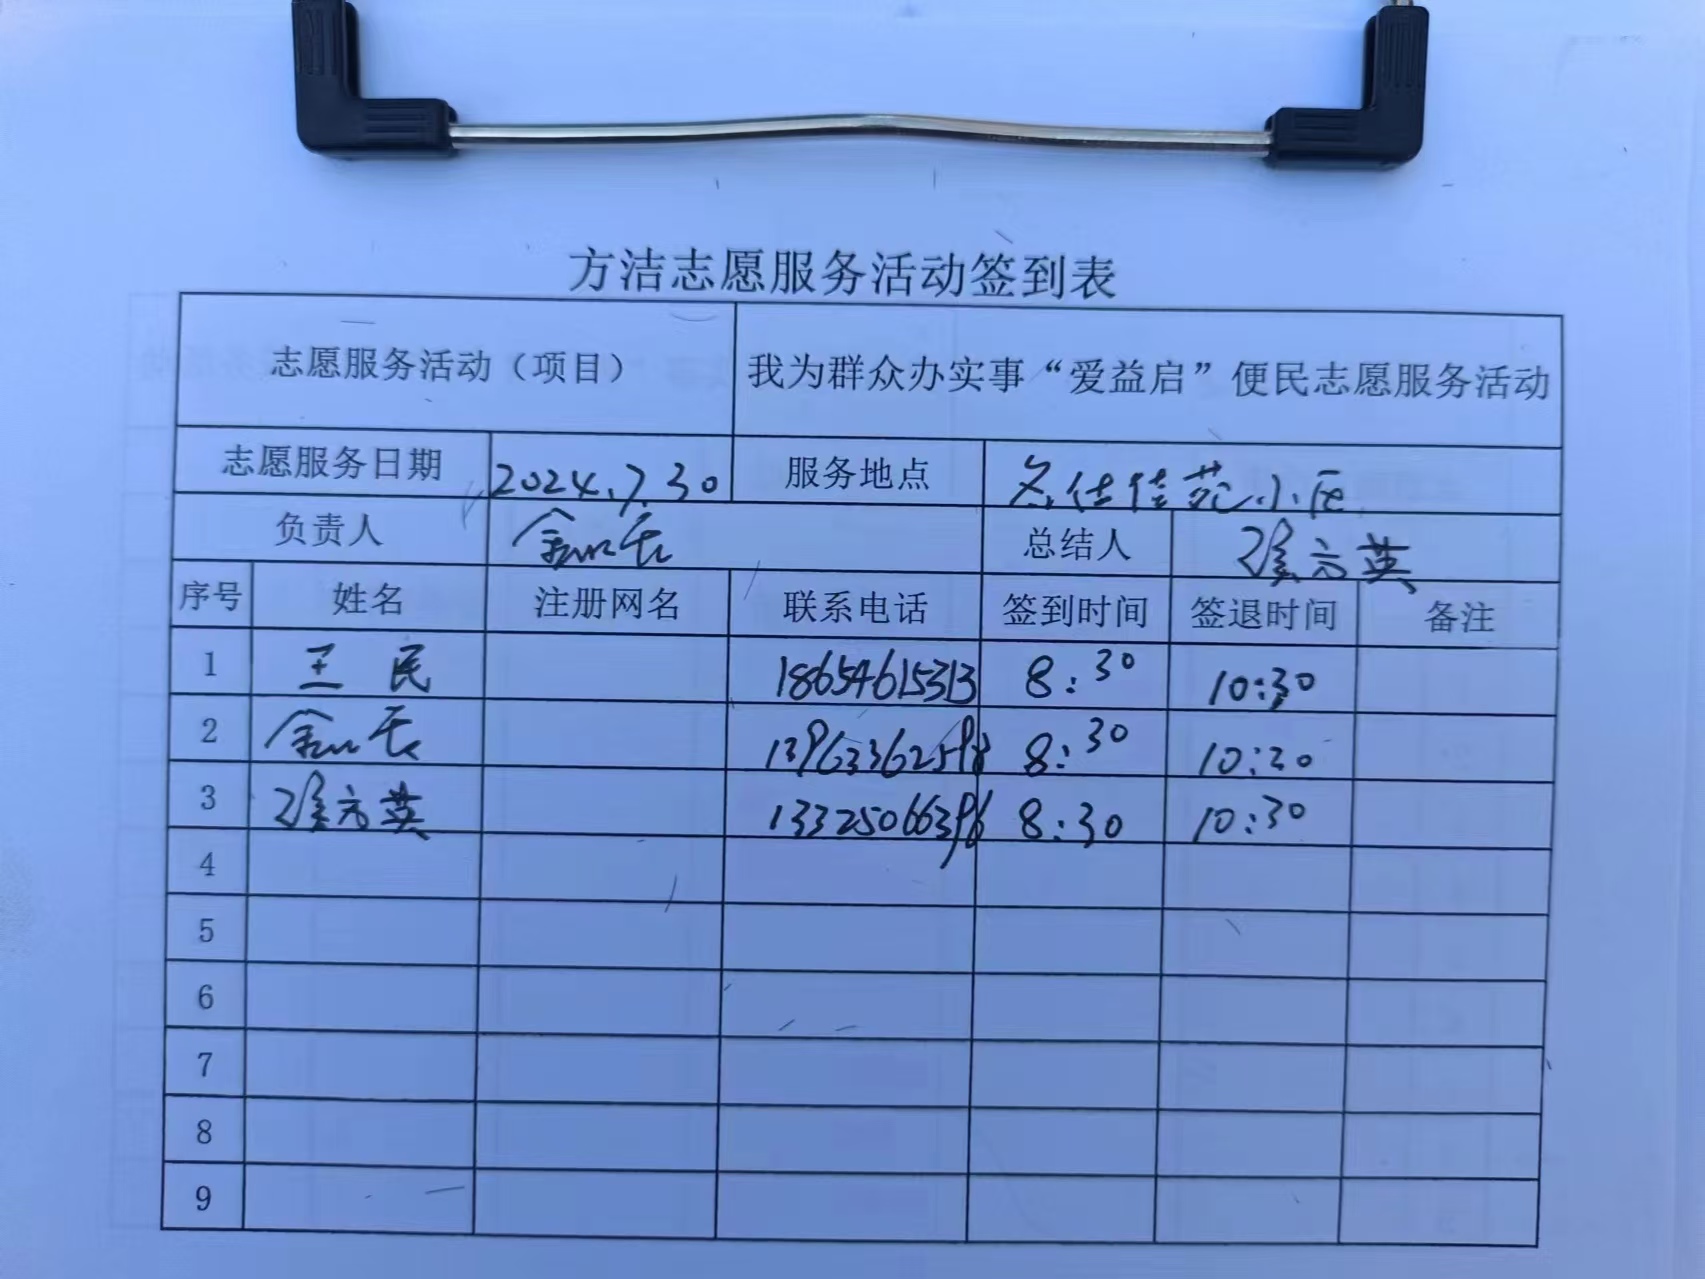 方洁志愿服务活动签到表
志愿服务活动（项目） 我为群众办实事“爱益启”便民志愿服务活动
志愿服务日期 2024.7.30 服务地点 名仕佳苑小区
负责人 总结人
序号 姓名 注册网名 联系电话 签到时间 签退时间 备注
1 王民 18654615313 8:30 10:30
2 13963362598 8:30 10:30
3 13325066396 8:30 10:30
4
5
6
7
8
9